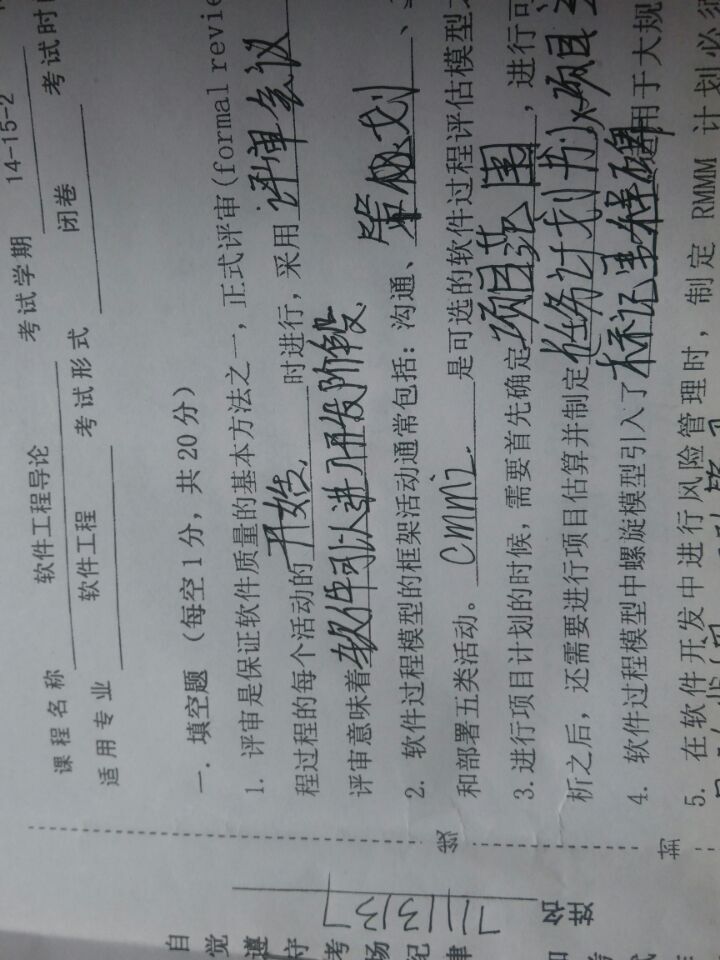 课程名称 软件工程导论 考试学期 14-15-2
适用专业 软件工程 考试形式 闭卷 考试时
一. 填空题（每空1分，共20分）
1. 评审是保证软件质量的基本方法之一，正式评审(formal revie
程过程的每个活动的 开始 时进行，采用 评审会议
评审意味着 软件可以进入开发阶段
2. 软件过程模型的框架活动通常包括：沟通、 策划 、
和部署五类活动。 CMMI 是可选的软件过程评估模型
3.进行项目计划的时候，需要首先确定 项目范围 ，进行可
析之后，还需要进行项目估算并制定 任务计划书 项目
4. 软件过程模型中螺旋模型引入了 标记里程碑 适用于大规
5. 在软件开发中进行风险管理时，制定 RMMM 计划必须
自觉遵守考场纪律
姓名